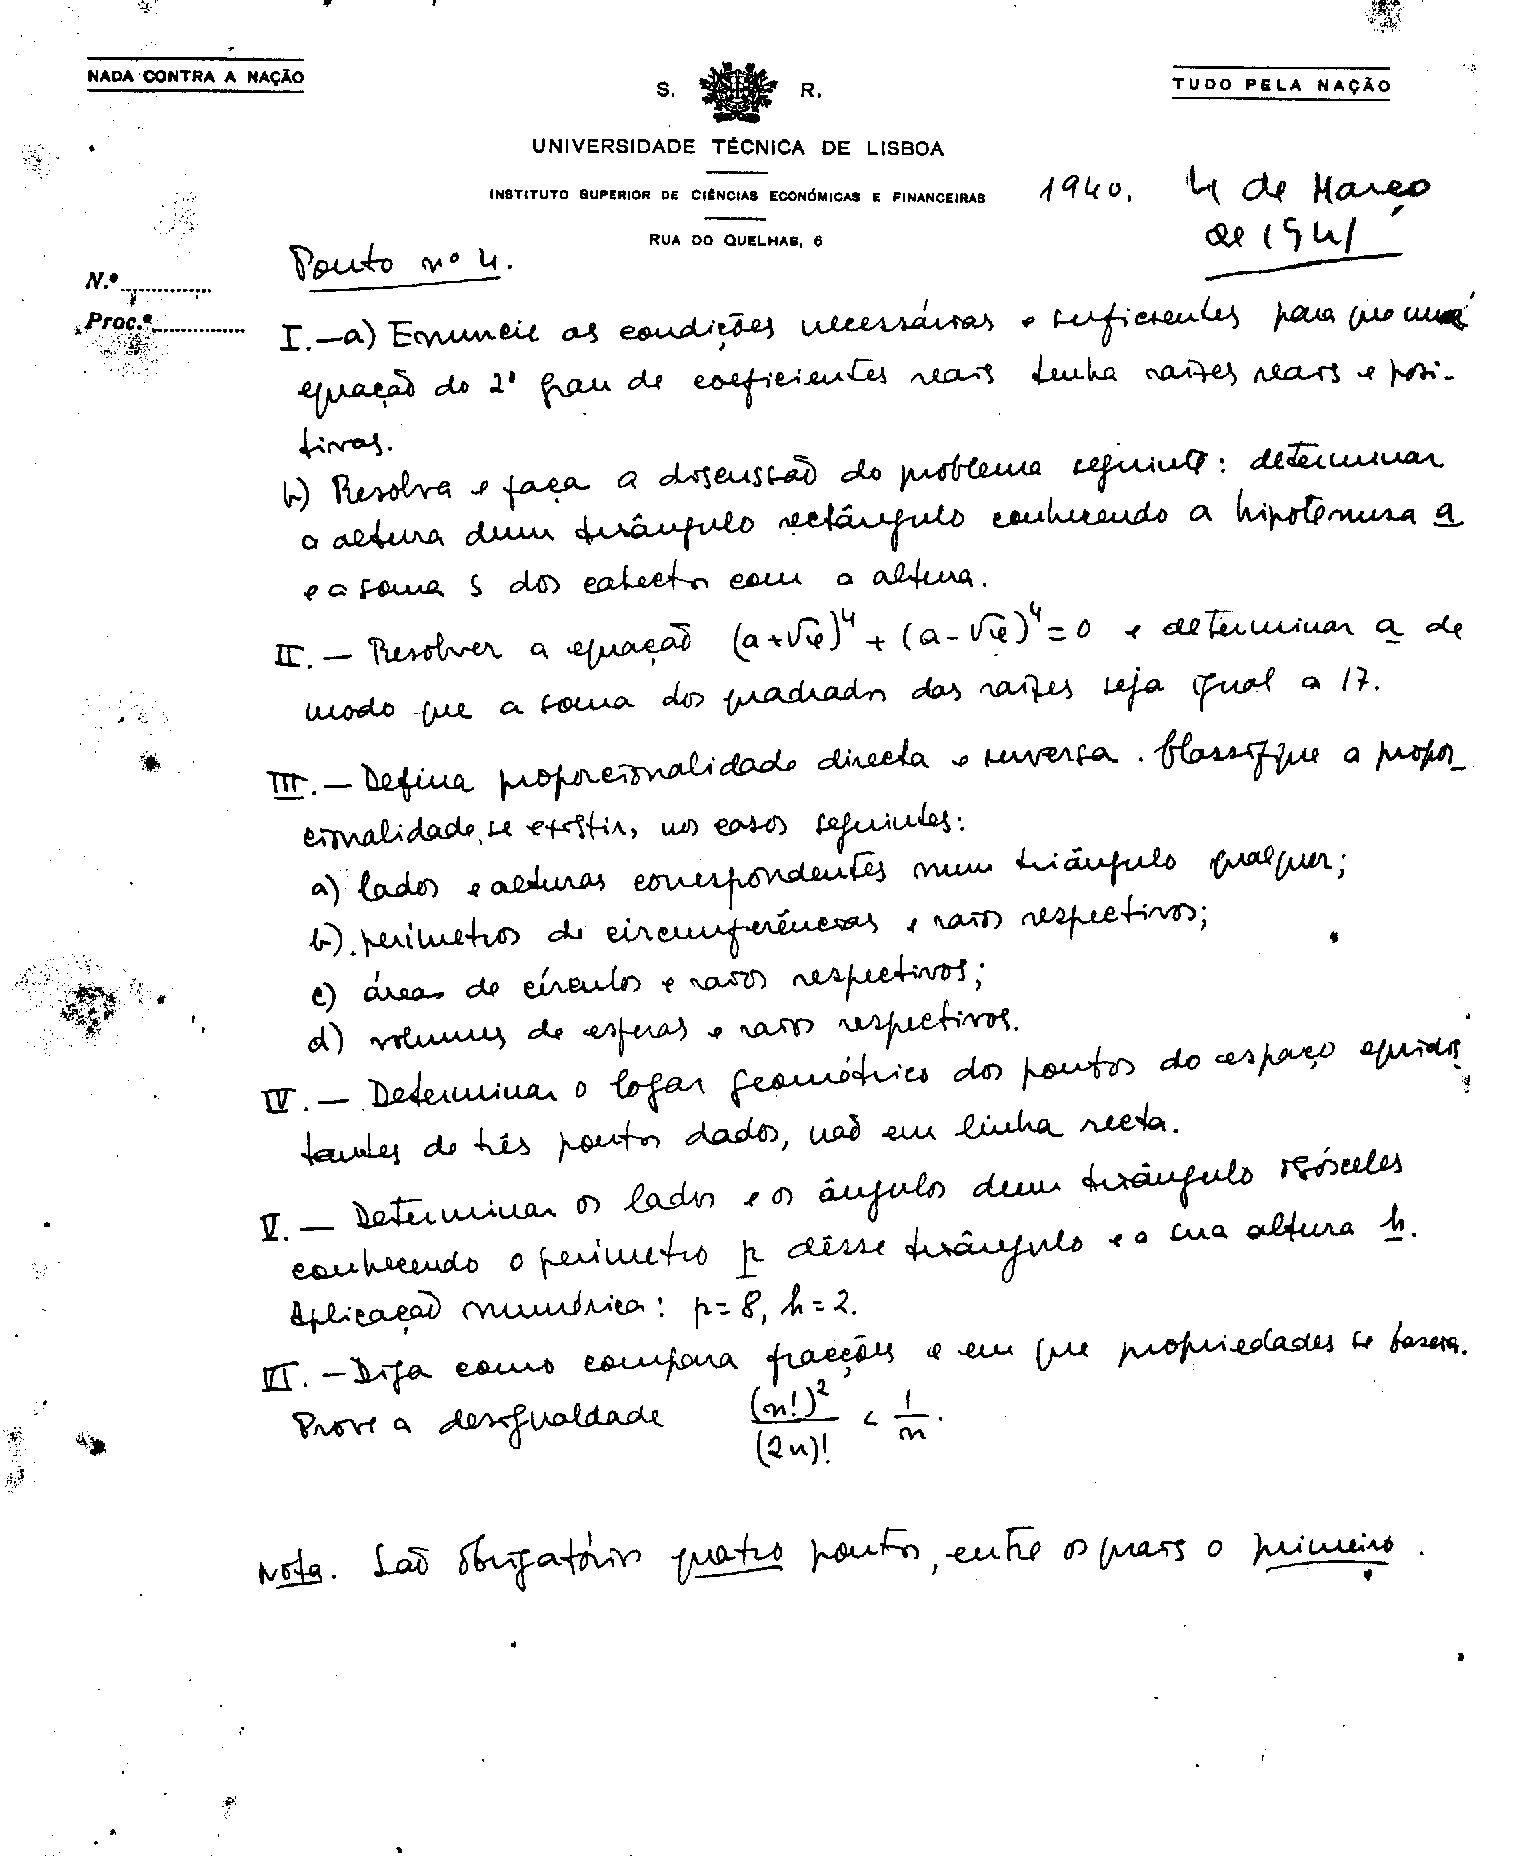 NADA CONTRA A NAÇÃO
S. R.
TUDO PELA NAÇÃO
UNIVERSIDADE TÉCNICA DE LISBOA
INSTITUTO SUPERIOR DE CIÊNCIAS ECONÓMICAS E FINANCEIRAS
1940. 4 de Março
de 1941
RUA DO QUELHAS, 6
Ponto nº 4.
N.º
Proc.º
I.—a) Enuncie as condições necessárias e suficientes para que uma
equação do 2º grau de coeficientes reais tenha raízes reais e posi-
tivas.
b) Resolva e faça a discussão do problema seguinte: determinar
a altura dum triângulo rectângulo conhecendo a hipotenusa a
e a soma s dos catectos com a altura.
II.— Resolver a equação (a+√x)⁴ + (a-√x)⁴ = 0 e determinar a de
modo que a soma dos quadrados das raízes seja igual a 17.
III.— Defina proporcionalidade directa e inversa. Classifique a propor_
cionalidade, se existir, nos casos seguintes:
a) lados e alturas correspondentes num triângulo qualquer;
b) perímetros de circunferências e raios respectivos;
c) áreas de círculos e raios respectivos;
d) volumes de esferas e raios respectivos.
IV.— Determinar o logar geométrico dos pontos do espaço equidis
tantes de três pontos dados, não em linha recta.
V.— Determinar os lados e os ângulos dum triângulo isósceles
conhecendo o perímetro p dêsse triângulo e a sua altura h.
Aplicação numérica: p=8, h=2.
VI.—Diga como compara fracções e em que propriedades se baseia.
Prove a desigualdade (n!)²/(2n)! < 1/n.
Nota. São obrigatórios quatro pontos, entre os quais o primeiro.